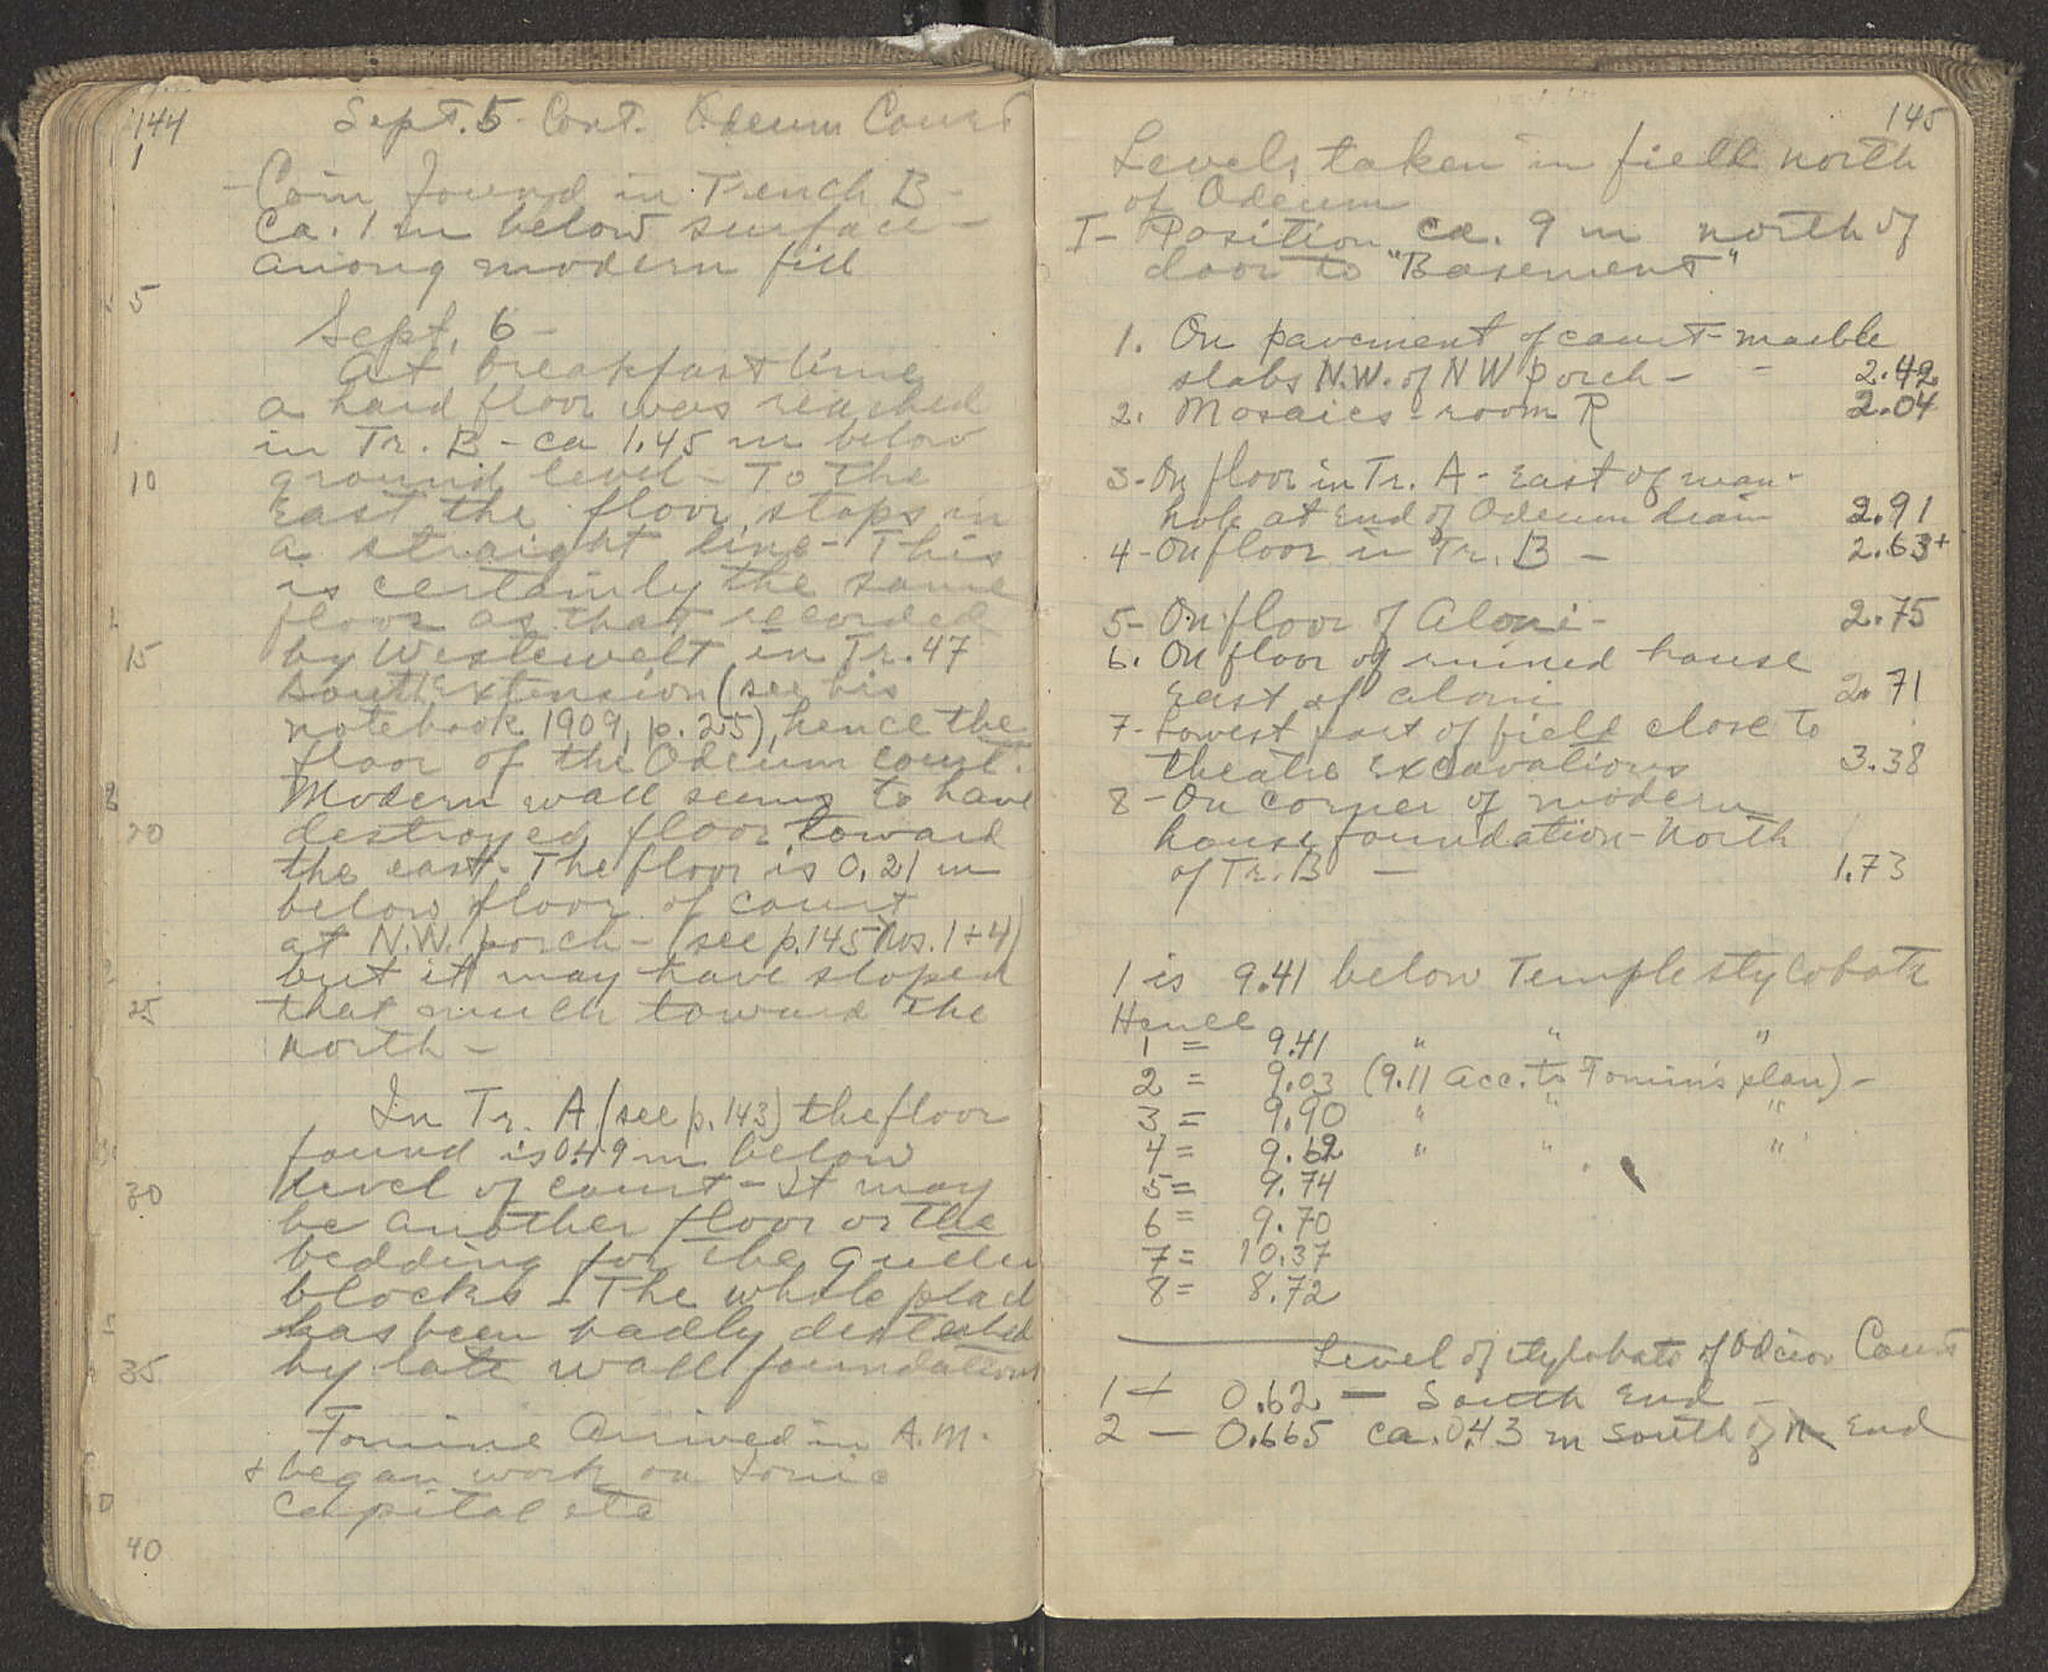 144
Sept. 5 - Cont. Odeum Court
1
- Coin found in Trench B -
Ca. 1 m below surface -
among modern fill
5
Sept. 6 -
At breakfast time
a hard floor was reached
in Tr. B - ca 1.45 m below
10
ground level - To the
East the floor stops in
a straight line - This
is certainly the same
floor as that recorded
15
by Westewelt in Tr. 47
South Extension (see his
notebook 1909, p. 25), hence the
floor of the Odeum court.
Modern wall seems to have
20
destroyed floor toward
the east. The floor is 0.21 m
below floor of court
at N.W. porch - (see p. 145 Nos. 1 + 4)
but it may have sloped
25
that much toward the
north -
In Tr. A (see p. 143) the floor
found is 0.49 m below
30
level of court - It may
be another floor or the
bedding for the gutter
blocks - The whole place
has been badly disturbed
35
by late wall foundations
Fomine arrived in A.M.
+ began work on Ionic
Capital etc
40
145
Levels taken in field north
of Odeum
I - Position ca. 9 m north of
door to "Basement"
1. On pavement of court - marble
slabs N.W. of NW porch - - 2.42
2. Mosaics - room R 2.04
3 - On floor in Tr. A - East of man-
hole at end of Odeum drain 2.91
4 - On floor in Tr. B - 2.63+
5 - On floor of Aloni - 2.75
6. On floor of ruined house
East of aloni 2.71
7 - Lowest part of field close to
theatre Excavations 3.38
8 - On corner of modern
house foundation - North
of Tr. B - 1.73
1 is 9.41 below Temple stylobate
Hence
1 = 9.41 " " "
2 = 9.03 (9.11 acc. to Fomin's plan) -
3 = 9.90 " " "
4 = 9.62 " " "
5 = 9.74
6 = 9.70
7 = 10.37
8 = 8.72
Level of stylobate of Odeion Court
1 + 0.62 - South End -
2 - 0.665 ca. 0.43 m south of N. End